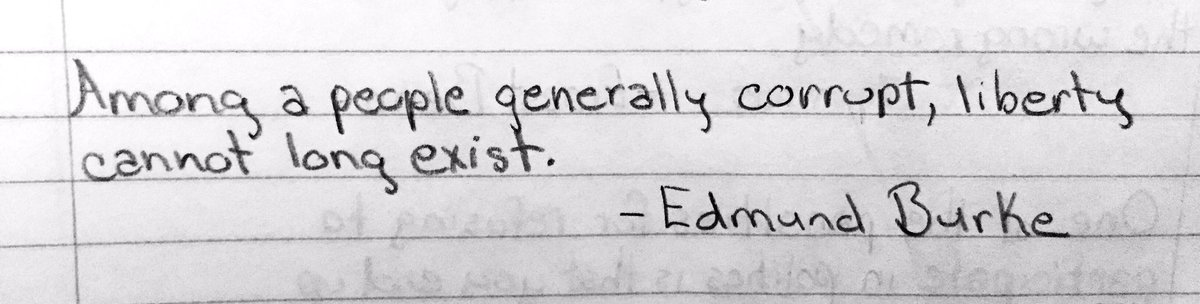 Among a people generally corrupt, liberty
cannot long exist.
- Edmund Burke